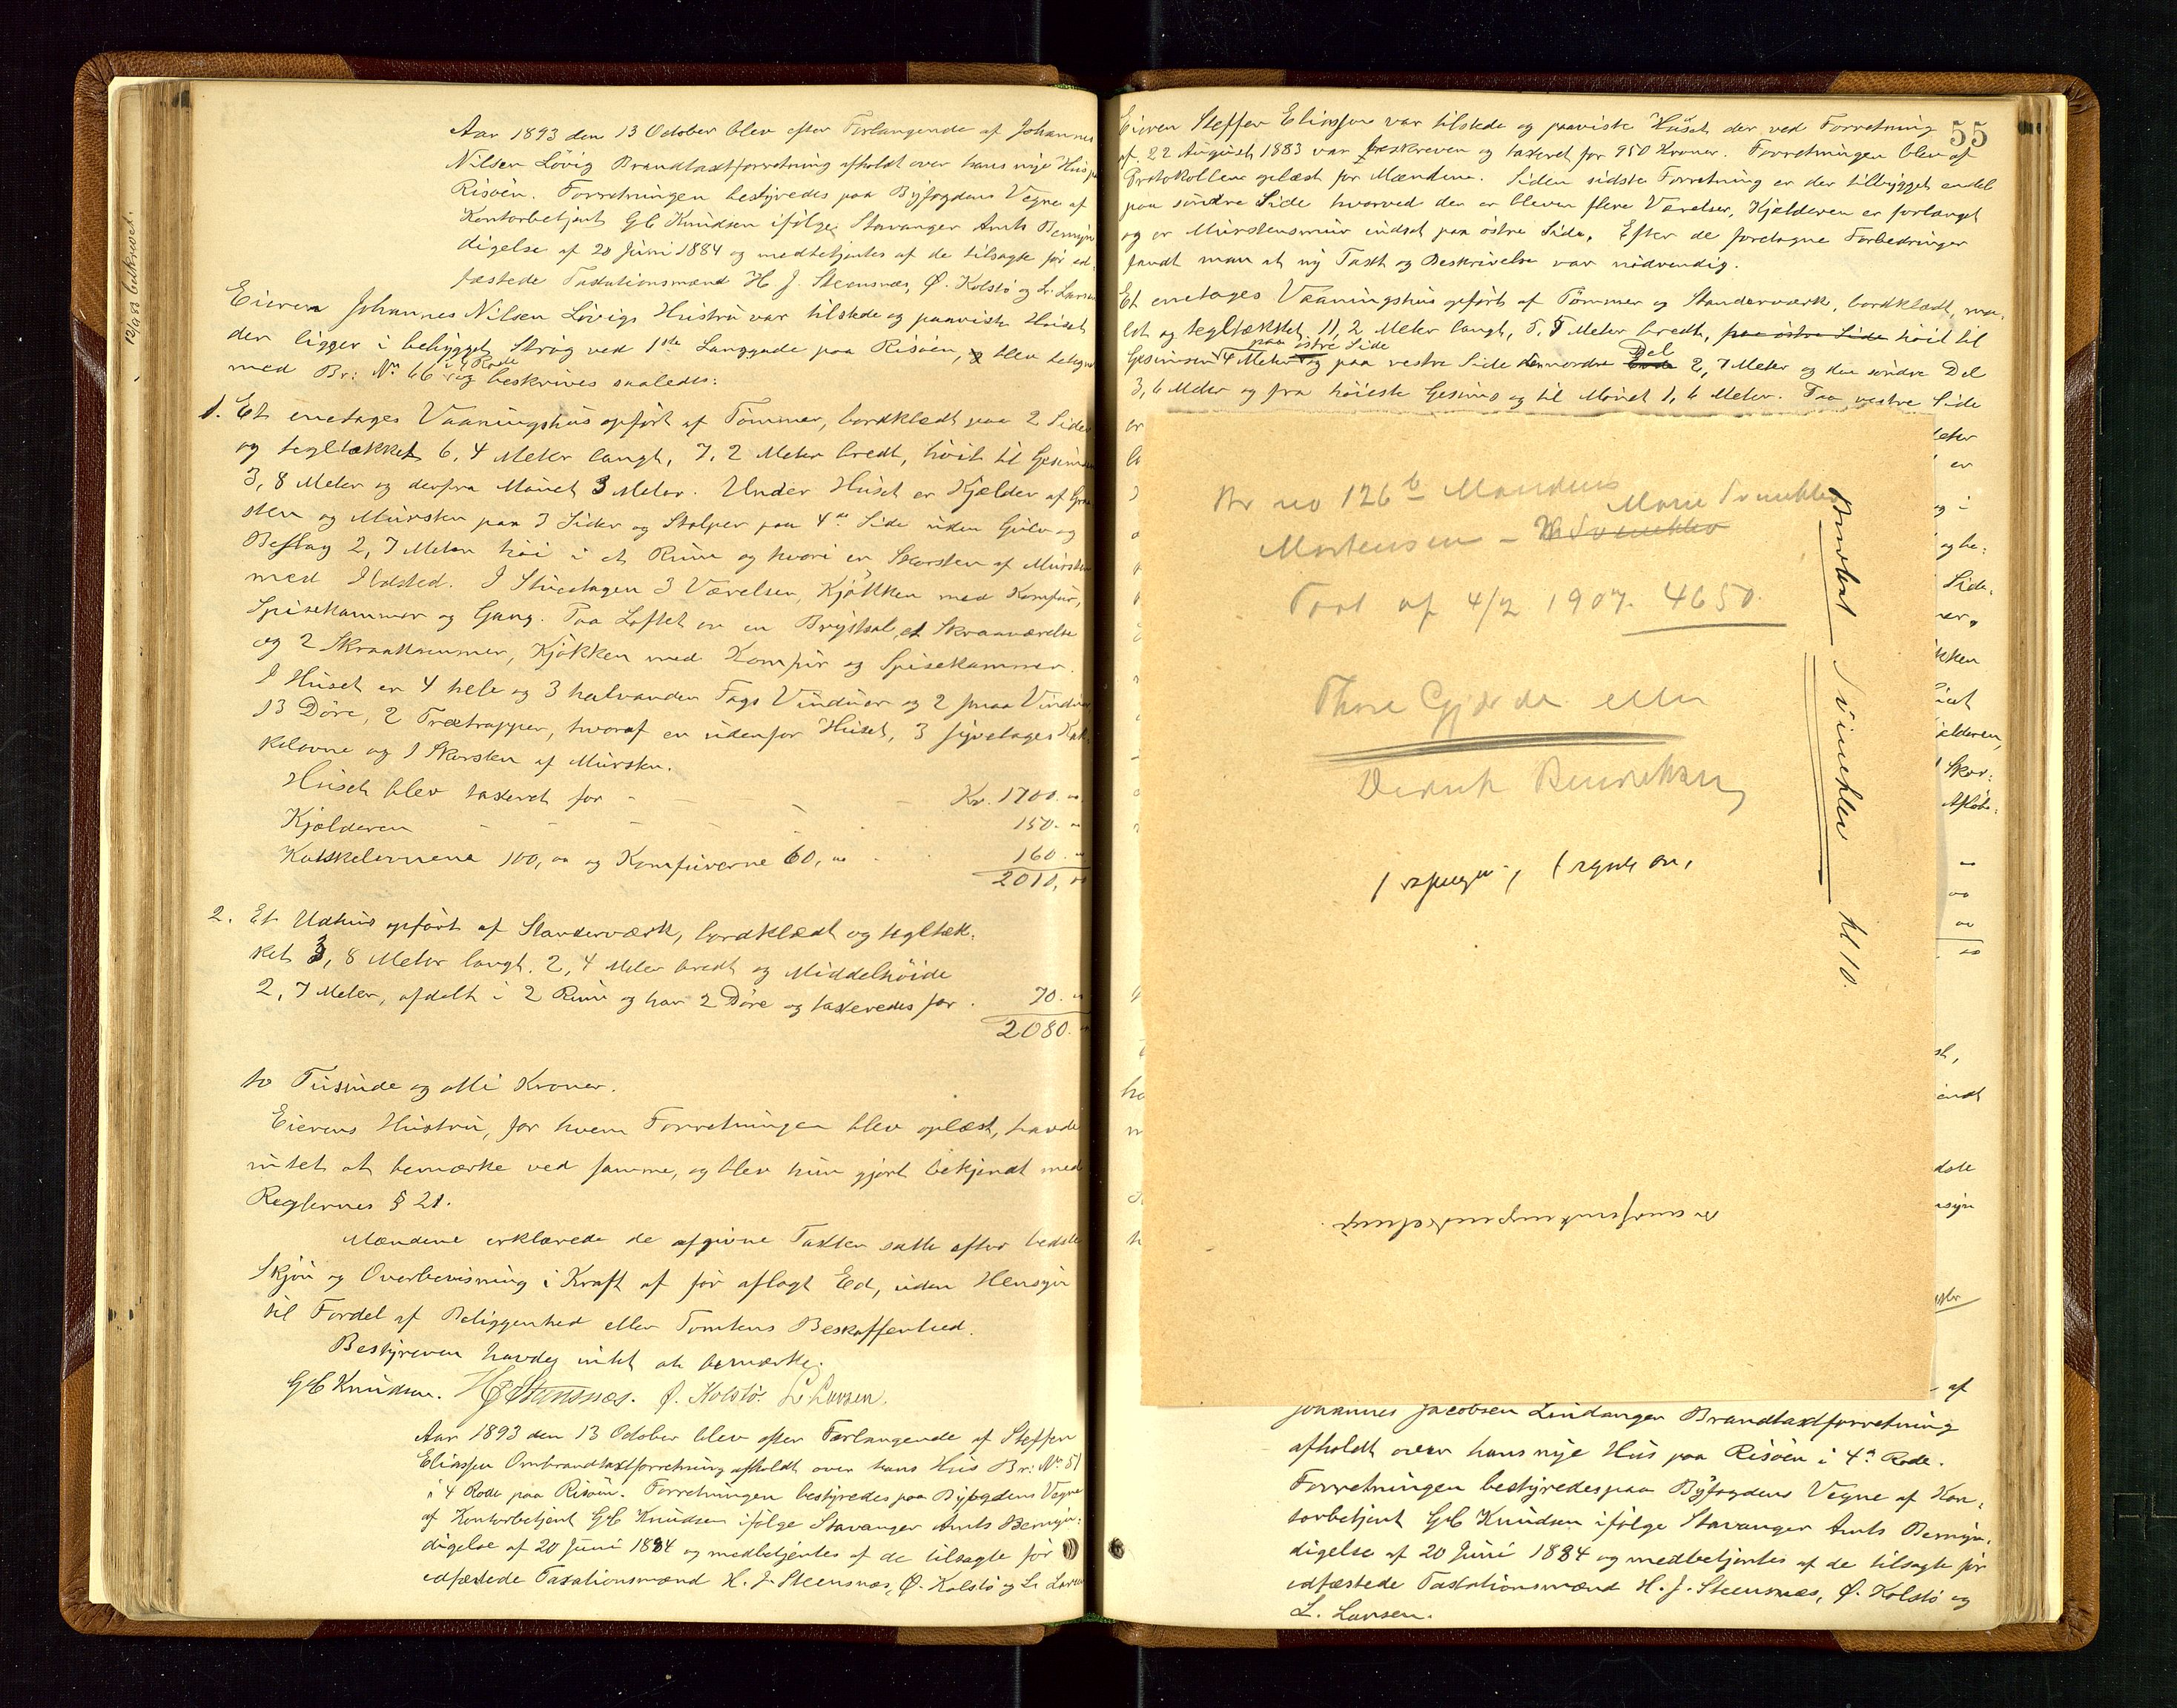 Aar 1893 den 13 October blev efter Forlangende af Johannes
Nilsen Lövig Brandtaxtforretning afholdt over hans nye Hus
Risøen. Forretningen bestyredes paa Byfogdens Vegne af
Kontorbetjent G C Knudsen ifølge Stavanger Amts Bemyn
digelse af 20 Juni 1884 og medbetjentes af de tilsagte før ed
fæstede Taxationsmænd H. J. Steensnæs, Ø. Kolstö og L. Larsen
Eieren Johannes Nilsen Lövigs Hustru var tilstede og paaviste Huset
der ligger i bebygget Strög ved 1ste Langgade paa Risöen, blev betegnet
med Br: No 66 i 4 Rode og beskrives saaledes:
1. Et enetages Vaaningshus opfört af Tömmer, bordklædt paa 2 Sider
og tegltækket 6,4 Meter langt, 7,2 Meter bredt, höit til Gesimsen
3,8 Meter og derfra Mönet 3 Meter. Under Huset er Kjelder af Graa
sten og Mursten paa 3 Sider og Stolper paa 4de Side uden Gulv og
Beslag 2,7 Meter höi i et Rum og hvori en Skorsten af Mursten
med Ildsted. I Stueetagen 3 Værelser, Kjökken med Komfur,
Spisekammer og Gang. Paa Loftet er en Brystsal, et Skraaværelse
og 2 Skraakammer, Kjökken med Komfur og Spisekammer.
I Huset er 4 hele og 3 halvanden Fags Vinduer og 2 smaa Vinduer
13 Döre, 2 Trætrapper, hvoraf en udenfor Huset, 3 syvetages Kak
kelovne og 1 Skorsten af Mursten.
Huset blev taxeret for - - - - Kr. 1700. "
Kjælderen - - - - - 150. "
Kakkelovnene 100, oo og Komfurerne 60, oo . . 160. "
2010, oo
2. Et Udhus opfört af Standerværk, bordklædt og tegltæk-
ket 3,8 Meter langt, 2,4 Meter bredt og Middelhöide
2,7 Meter, afdelt i 2 Rum og har 2 Döre og taxeredes for . 70. "
2080. "
to Tusinde og otti Kroner.
Eierens Hustru, for hvem Forretningen blev oplæst, havde
intet at bemærke ved samme, og blev hun gjort bekjendt med
Reglernes § 21.
Mændene erklærede de afgivne Taxter satte efter bedste
Skjön og Overbevisning i Kraft af för aflagt Ed, uden Hensyn
til Fordel af Beliggenhed eller Tomtens Beskaffenhed.
Bestyreren havde intet at bemærke.
G C Knudsen. H J Steensnæs. Ø. Kolstö. L. Larsen.
Aar 1893 den 13 October blev efter Forlangende af Steffen
Eliassen Ombrandtaxtforretning afholdt over hans Hus Br: No 51
i 4 Rode paa Risöen. Forretningen bestyredes paa Byfogdens Vegne
af Kontorbetjent G C Knudsen ifölge Stavanger Amts Bemyn:
digelse af 20 Juni 1884 og medbetjentes af de tilsagte för
edfæstede Taxationsmænd H. J. Steensnæs, Ø. Kolstö og L. Larsen
55
Eieren Steffen Eliassen var tilstede og paaviste Huset der ved Forretning
af 22 August 1883 var beskreven og taxeret for 950 Kroner. Forretningen blev af
Protokollen oplæst for Mændene. Siden sidste Forretning er der tilbygget endel
paa söndre Side hvorved der er bleven flere Værelser, Kjelderen er forlænget
og er Murstensmur indsat paa östre Side. Efter de foretagne Forbedringer
fandt man at ny Taxt og Beskrivelse var nödvendig.
Et enetages Vaaningshus opfört af Tömmer og Standerværk, bordklædt, ma-
let og tegltækket, 11,2 Meter langt, 5,5 Meter bredt, paa östre Side höit til
paa östre Side
Gesimsen 4 Meter og paa vestre Side den nordre Del 2,7 Meter og den söndre Del
3,6 Meter og fra höieste Gesims og til Mönet 1,6 Meter. Paa vestre Side
Br no 126 b Maudens
Marie Svineklev
Mortensen -
Taxt af 4/2 1907. 4650.
Thore Gjerde eller
Brandtaxt Svineklev kl 10.
Johannes Jacobsen Lindanger Brandtaxtforretning
afholdt over hans nye Hus paa Risöen i 4de Rode.
Forretningen bestyredes paa Byfogdens Vegne af Kon:
torbetjent G C Knudsen ifölge Stavanger Amts Bemyn:
digelse af 20 Juni 1884 og medbetjentes af de tilsagte för
edfæstede Taxationsmænd H. J. Steensnæs, Ø. Kolstö og
L. Larsen.